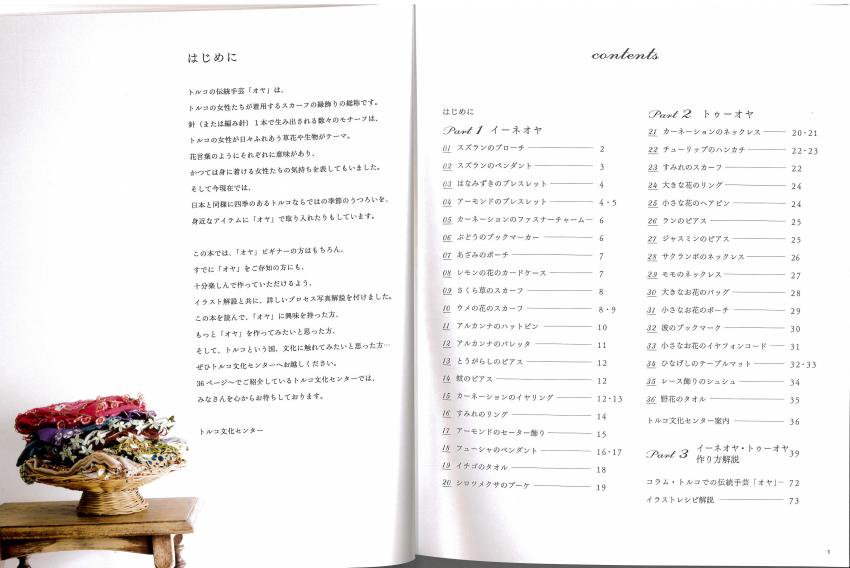 はじめに
トルコの伝統手芸「オヤ」は、
トルコの女性たちが着用するスカーフの縁飾りの総称です。
針（または編み針）1本で生み出される数々のモチーフは、
トルコの女性が日々ふれあう草花や生物がテーマ。
花言葉のようにそれぞれに意味があり、
かつては身に着ける女性たちの気持ちを表してもいました。
そして今現在では、
日本と同様に四季のあるトルコならではの季節のうつろいを、
身近なアイテムに「オヤ」で取り入れたりもしています。
この本では、「オヤ」ビギナーの方はもちろん、
すでに「オヤ」をご存知の方にも、
十分楽しんで作っていただけるよう、
イラスト解説と共に、詳しいプロセス写真解説を付けました。
この本を読んで、「オヤ」に興味を持った方、
もっと「オヤ」を作ってみたいと思った方、
そして、トルコという国、文化に触れてみたいと思った方…
ぜひトルコ文化センターへお越しください。
36ページ〜でご紹介しているトルコ文化センターでは、
みなさんを心からお待ちしております。
トルコ文化センター
contents
はじめに
Part 1 イーネオヤ
01 スズランのブローチ 2
02 スズランのペンダント 3
03 はなみずきのブレスレット 4
04 アーモンドのブレスレット 4・5
05 カーネーションのファスナーチャーム 6
06 ぶどうのブックマーカー 6
07 あざみのポーチ 7
08 レモンの花のカードケース 7
09 さくら草のスカーフ 8
10 ウメの花のスカーフ 8・9
11 アルカンナのハットピン 10
12 アルカンナのバレッタ 11
13 とうがらしのピアス 12
14 蚊のピアス 12
15 カーネーションのイヤリング 12・13
16 すみれのリング 14
17 アーモンドのセーター飾り 15
18 フューシャのペンダント 16・17
19 イチゴのタオル 18
20 シロツメクサのブーケ 19
Part 2 トゥーオヤ
21 カーネーションのネックレス 20・21
22 チューリップのハンカチ 22・23
23 すみれのスカーフ 22
24 大きな花のリング 24
25 小さな花のヘアピン 24
26 ランのピアス 25
27 ジャスミンのピアス 25
28 サクランボのネックレス 26
29 モモのネックレス 27
30 大きなお花のバッグ 28
31 小さなお花のポーチ 29
32 波のブックマーク 30
33 小さなお花のイヤフォンコード 31
34 ひなげしのテーブルマット 32・33
35 レース飾りのシュシュ 34
36 野花のタオル 35
トルコ文化センター案内 36
Part 3 イーネオヤ・トゥーオヤ 39
作り方解説
コラム・トルコでの伝統手芸「オヤ」 72
イラストレシピ解説 73
1